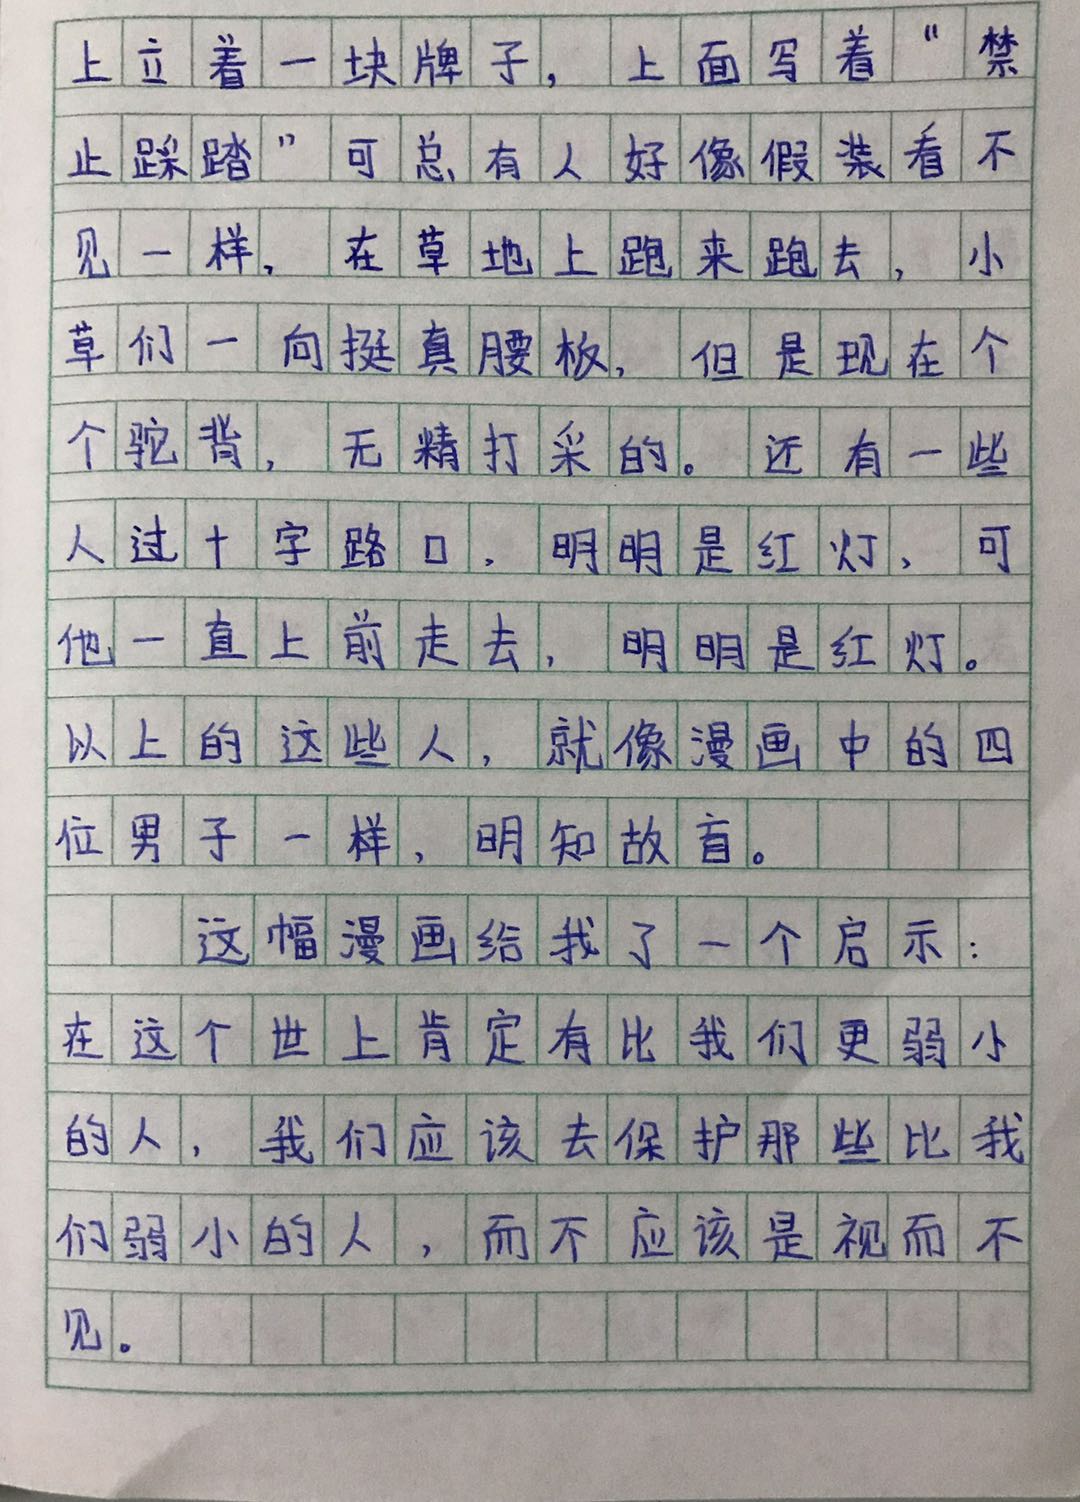 上立着一块牌子，上面写着“禁
止踩踏”可总有人好像假装看不
见一样，在草地上跑来跑去，小
草们一向挺真腰板，但是现在个
个驼背，无精打采的。还有一些
人过十字路口，明明是红灯，可
他一直上前走去，明明是红灯。
以上的这些人，就像漫画中的四
位男子一样，明知故盲。
这幅漫画给我了一个启示：
在这个世上肯定有比我们更弱小
的人，我们应该去保护那些比我
们弱小的人，而不应该是视而不
见。